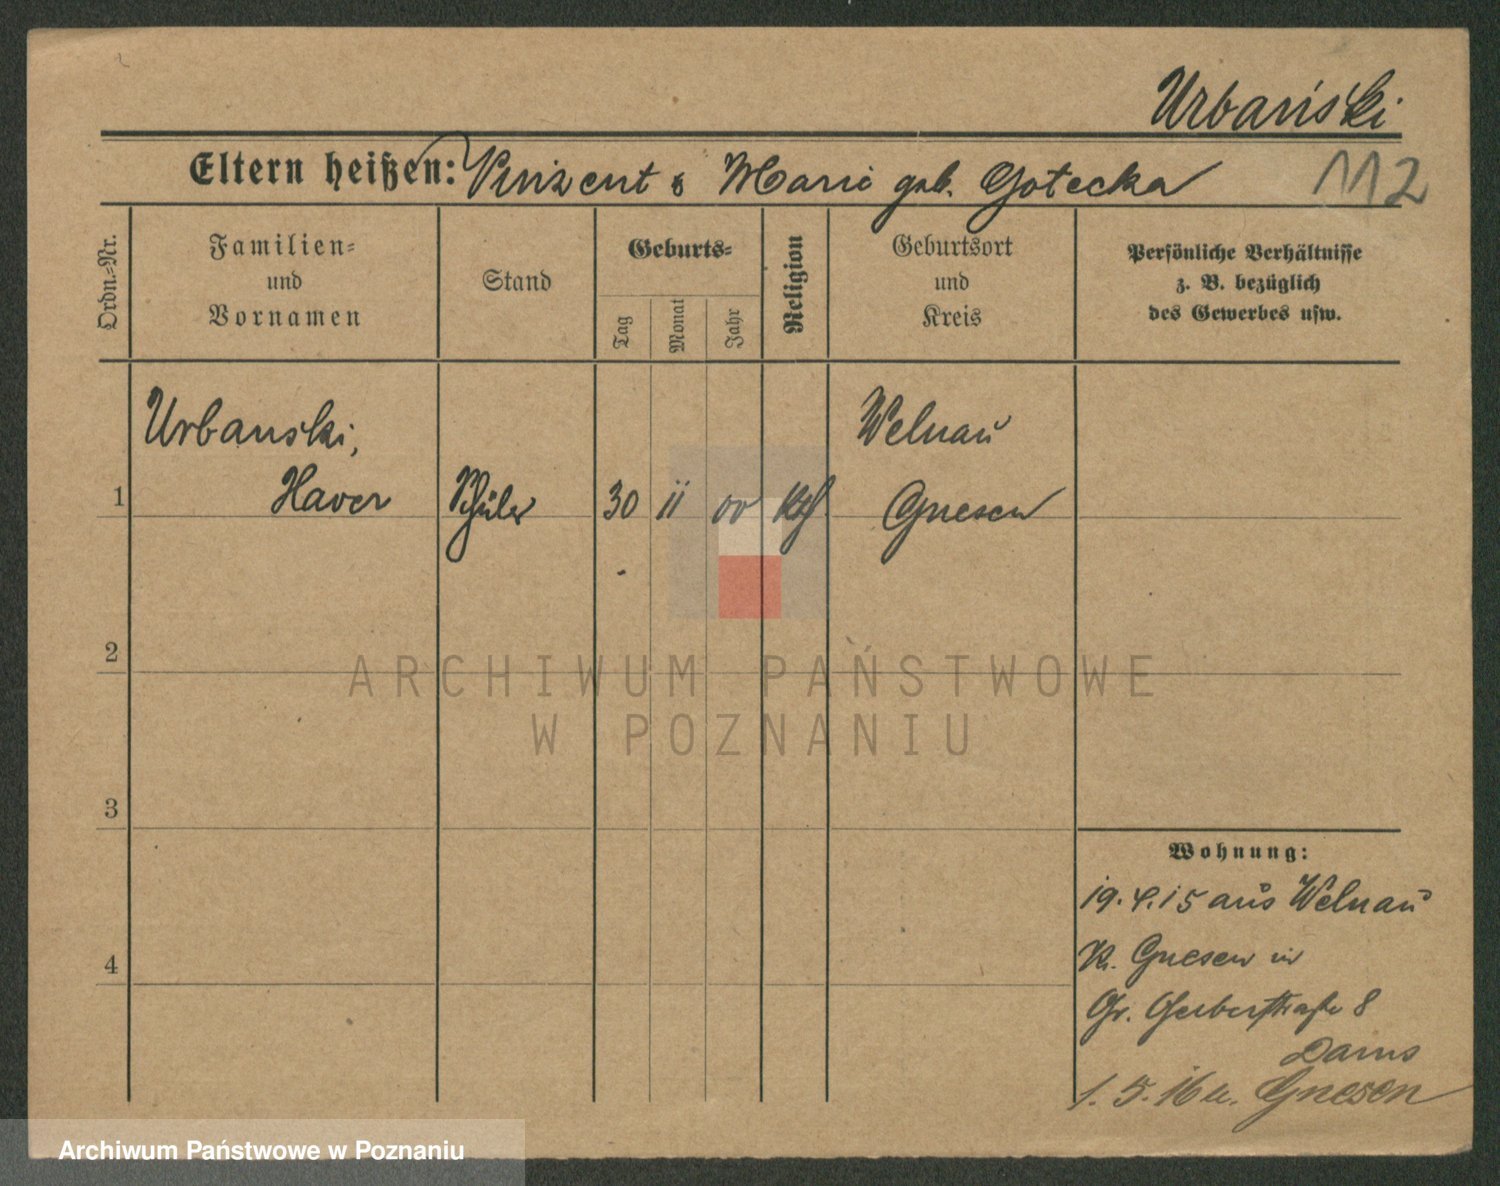 Urbański
Eltern heißen: Vinzent & Marie geb. Gotecka
112
Ordn.-Nr.
Familien-
und
Vornamen
Stand
Geburts-
Tag
Monat
Jahr
Religion
Geburtsort
und
Kreis
Persönliche Verhältnisse
z. B. bezüglich
des Gewerbes usw.
Urbanski,
Xaver
1
Schüler
30
11
00
kth
Welnau
Gnesen
2
ARCHIWUM PAŃSTWOWE
W POZNANIU
3
4
Wohnung:
19.4.15 aus Welnau
Kr. Gnesen in
Gr. Gerberstraße 8
1. 5. 16 n. Gnesen
Archiwum Państwowe w Poznaniu